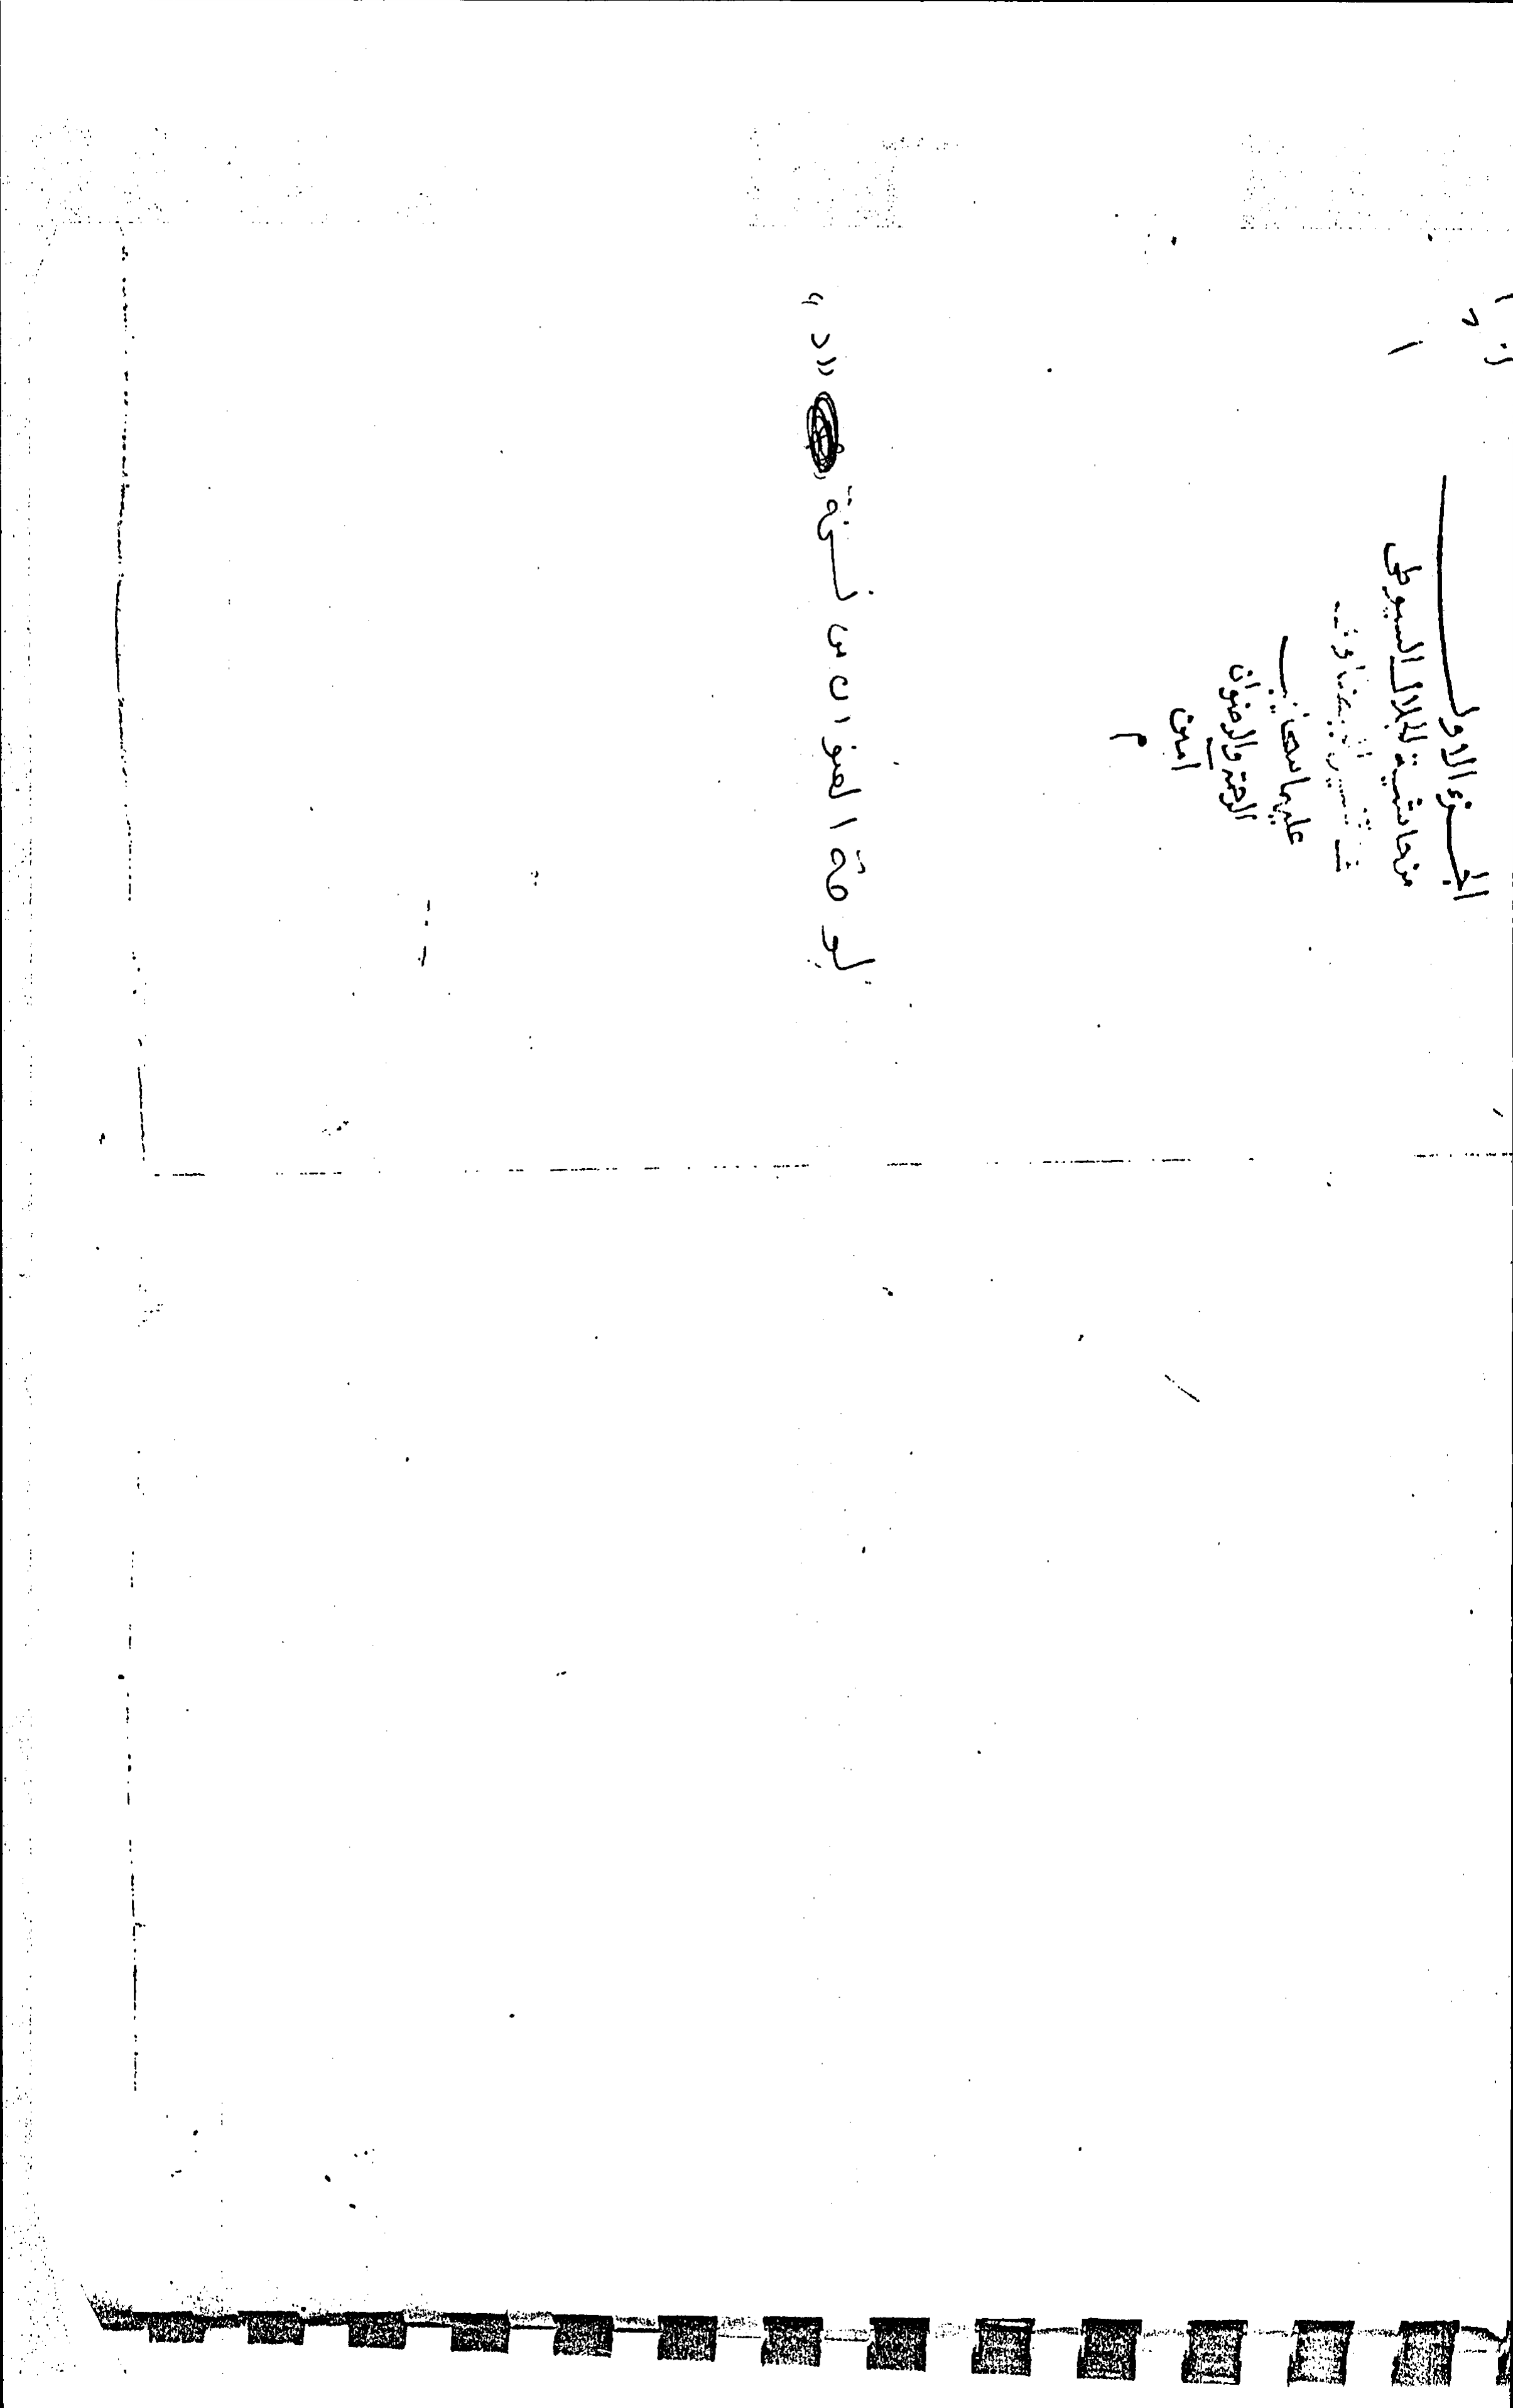 الجزء الاول
من حاشية الجلال السيوطى
تفسير البيضاوى
عليهما سحائب
الرحمة والرضوان
امين
م
لوحة العنوان من نسخة «د»